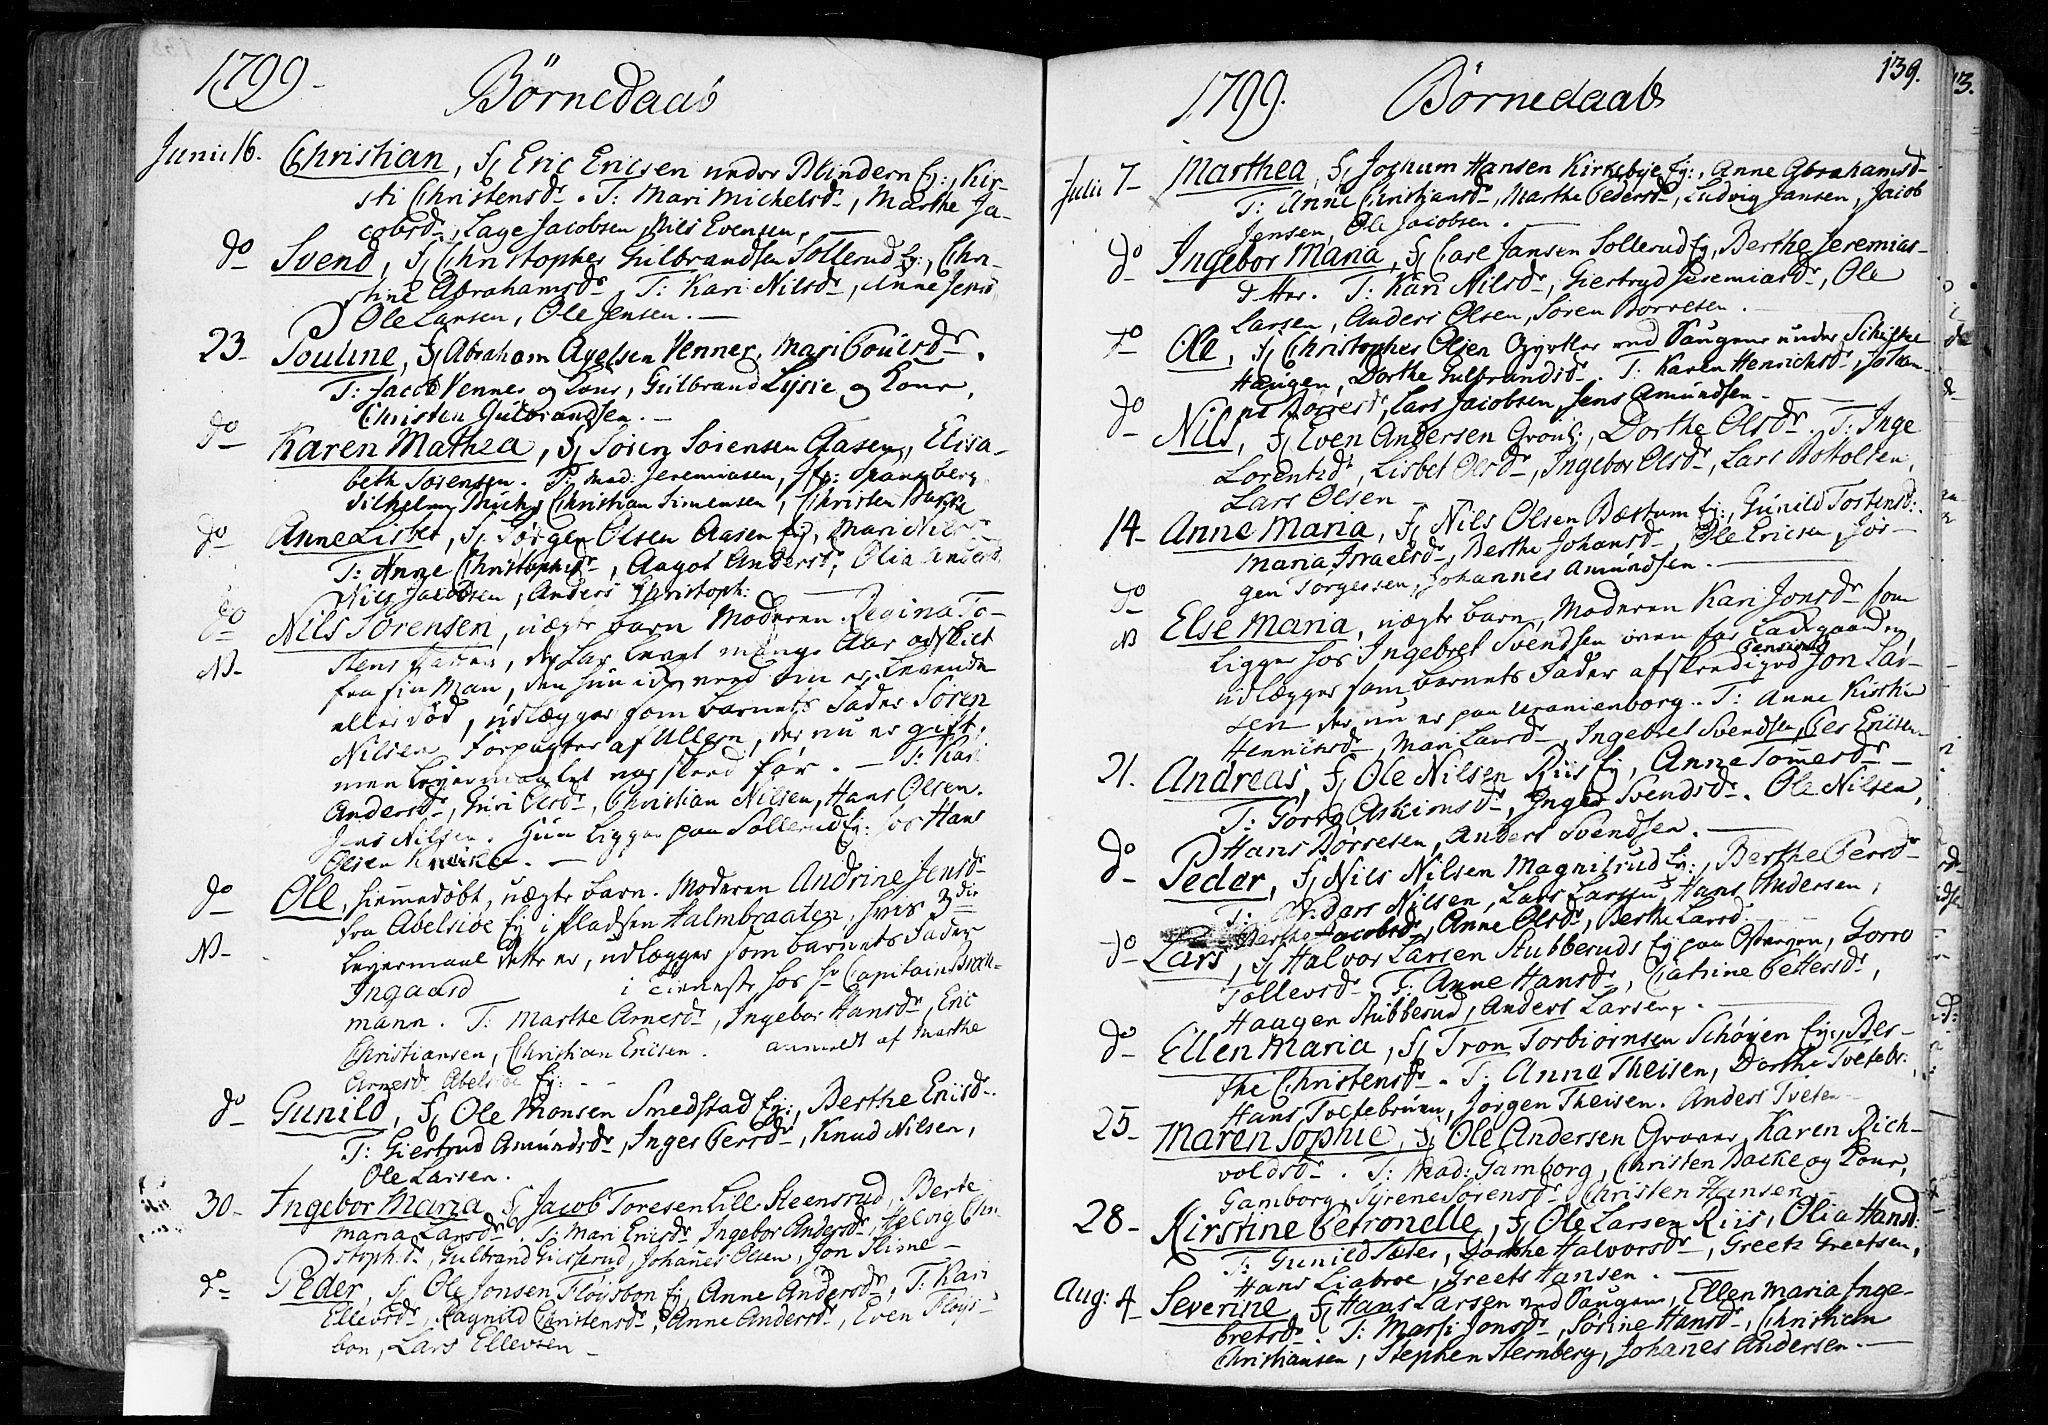 1799.
Børnedaab
Junii 16. Christian, F: Eric Ericsen under Blindern Ej:, Kir-
sti Christensdr. T: Mari Michelsdr, Marthe Ja-
cobsdr, Lage Jacobsen, Nils Evensen,
do Svend, F: Christopher Gulbrandsen Sollerud Ej:, Chri-
stine Abrahamsdr, T: Kari Nilsdr, Anne Jens
Ole Larsen, Ole Jensen.
23 Pouline, F: Abraham Axelsen Venner, Mari Poulsdr.
T: Jacob Venner og Kone, Gulbrand Lysie og Kone,
Christen Gulbrandsen.
do Karen Mathea, F: Søren Sørensen Aasen, Elisa-
beth Sørensen. T: Mad: Jeremiasen, Jfr: Spangberg,
Christian Simensen, Christen Bakke
do Anne Lisbet, F: Jørgen Olsen Aasen Ej, Mari Nilsdr
T: Anne Christophsdr, Aagot Andersdr, Olia Andersdr
Nils Jacobsen, Anders Christoph:
do Nils Sørensen, uægte barn Moderen Regina To-
NB stens datter, der har levet mange Aar adskilt
fra sin Man, den hun ik ved om er levende
eller død, udlægger som barnets Fader Søren
Nilsen, Forpagter af Ullern, der nu er gift,
men Leyermaalet var skeed før. T: Kari
Andersdr, Guri Olsdr, Christian Nilsen, Hans Olsen.
Jens Nilsen. Hun ligger paa Sollerud Ej: hos Hans
Olsen
do Ole, hiemmedøbt, uægte barn. Moderen Andrine Jensdr
fra Abelsiøe Ej i Pladsen Halmbraaten, hvis 3die
NB Leyermaal dette er, udlægger som barnets Fader
Ingaard i tieneste hos Hr Capitain Brok-
mann. T: Marthe Arnesdr, Ingebor Hansdr, Eric
Christiansen, Christian Ericsen. anmeldt af Marthe
Arnesdr Abelsiøe Ej:
do Gunild, F: Ole Monsen Smedstad Ej:, Berthe Ericsd.
T: Giertrud Amundsdr, Inger Persdr, Knud Nilsen,
Ole Larsen.
30 Ingebor Maria, F: Jacob Toresen Lill Steensrud, Berte
Maria Larsdr. T: Mari Ericsdr, Ingebor Andersdr, Helvig Chri-
stoph.dr, Gulbrand, Johanes Olsen, Jon Slime-
do Peder, F: Ole Jonsen Floysbon Ej, Anne Andersdr, T: Kari
Ellevsdr, Ragnild Christensdr, Anne Andersdr, Even Floys-
bon, Lars Ellevsen
1799.
Børnedaab
139.
Julii 7 Marthea, F: Jochum Hansen Kirkebye Ej:, Anne Abrahamsd
T: Anne Christiansdr, Marthe Pedersdr, Ludvig Jansen, Jacob
Jensen, Ole Jacobsen.
do Ingebor Maria, F: Carl Jansen Sollerud Ej, Berthe Jeremias-
dtter. T: Kari Nilsdr, Giertryd Jeremiasdr, Ole
Larsen, Anders Olsen, Søren Børresen.
do Ole, F: Christopher Olsen Gyrtler ved Saugene under
Haugen, Dorthe Gulbrandsdr. T: Karen Henrichsdr, Johan-
ne Børresdr, Lars Jacobsen, Jens Amundsen
do Nils, F: Even Andersen, Dorthe Olsdr. T: Inge
Lorentsdr, Lisbet Olsdr, Ingebor Olsdr, Lars Botolsen,
Lars Olsen
14 Anne Maria, F: Nils Olsen Bæstum Ej:, Gunild Tostensd:
Maria Israelsdr, Berthe Johansd, Ole Ericsen, Jør-
gen Torgersen, Johannes Amundsen.
do Else Maria, uægte barn, Moderen Kari Jonsdr som
NB ligger hos Ingebret Svendsen oven for Ladegaarden,
udlægger som barnets Fader afskediged Jon Lar-
sen der nu er paa Uranienborg. T: Anne Kirstine
Henrichsdr, Mari Larsdr, Ingebret Svendsen, Per Ericsen
21. Andreas, F: Ole Nilsen Riis Ej, Anne Tomesdr
T: Gorro Askimsdr, Inger Svendsdr. Ole Nilsen,
Hans Børresen, Anders Svendsen.
do Peder, F: Nils Nilsen Magnisrud Ej:, Berthe Persdr
T: Nilsen, Lars Larssen, Hans Andersen,
Berthe Jacobsdr, Anne Olsdr, Berthe Larsd
do Lars, F: Halvor Larsen Stubberuds Ej paa Osteren, Gorro
Tollevsdr. T: Anne Hansdr, Catrine Pettersdr,
Haagen Stubberud, Anders Larsen.
do Ellen Maria, F: Tron Torbiørnsen Schøyen Ej:, Ber-
the Christensdr. T: Anne Theisen, Dorthe Tvetebr:
Hans Tvetebruen, Jørgen Theisen. Anders Tveten
25 Maren Sophie, F: Ole Andersen Graver, Karen Rich-
voldsdr. T: Mad: Gamborg, Christen Bakke og Kone,
Gamborg, Syrene Sørensdr, Christen Hansen
28 Kirstine Petronelle, F: Ole Larsen Riis, Olia Hansd:
T: Gunild Sæter, Dorthe Halvorsdr, Greete Greetsen,
Hans Liabroe, Greets Hansen.
Aug: 4 Severine, F: Hans Larsen ved Saugene, Ellen Maria Inge-
bretsdr. T: Marfi Jonsdr, Sørine Hansdr, Christian
Christiansen, Stephen Sternberg, Johanes Andersen.